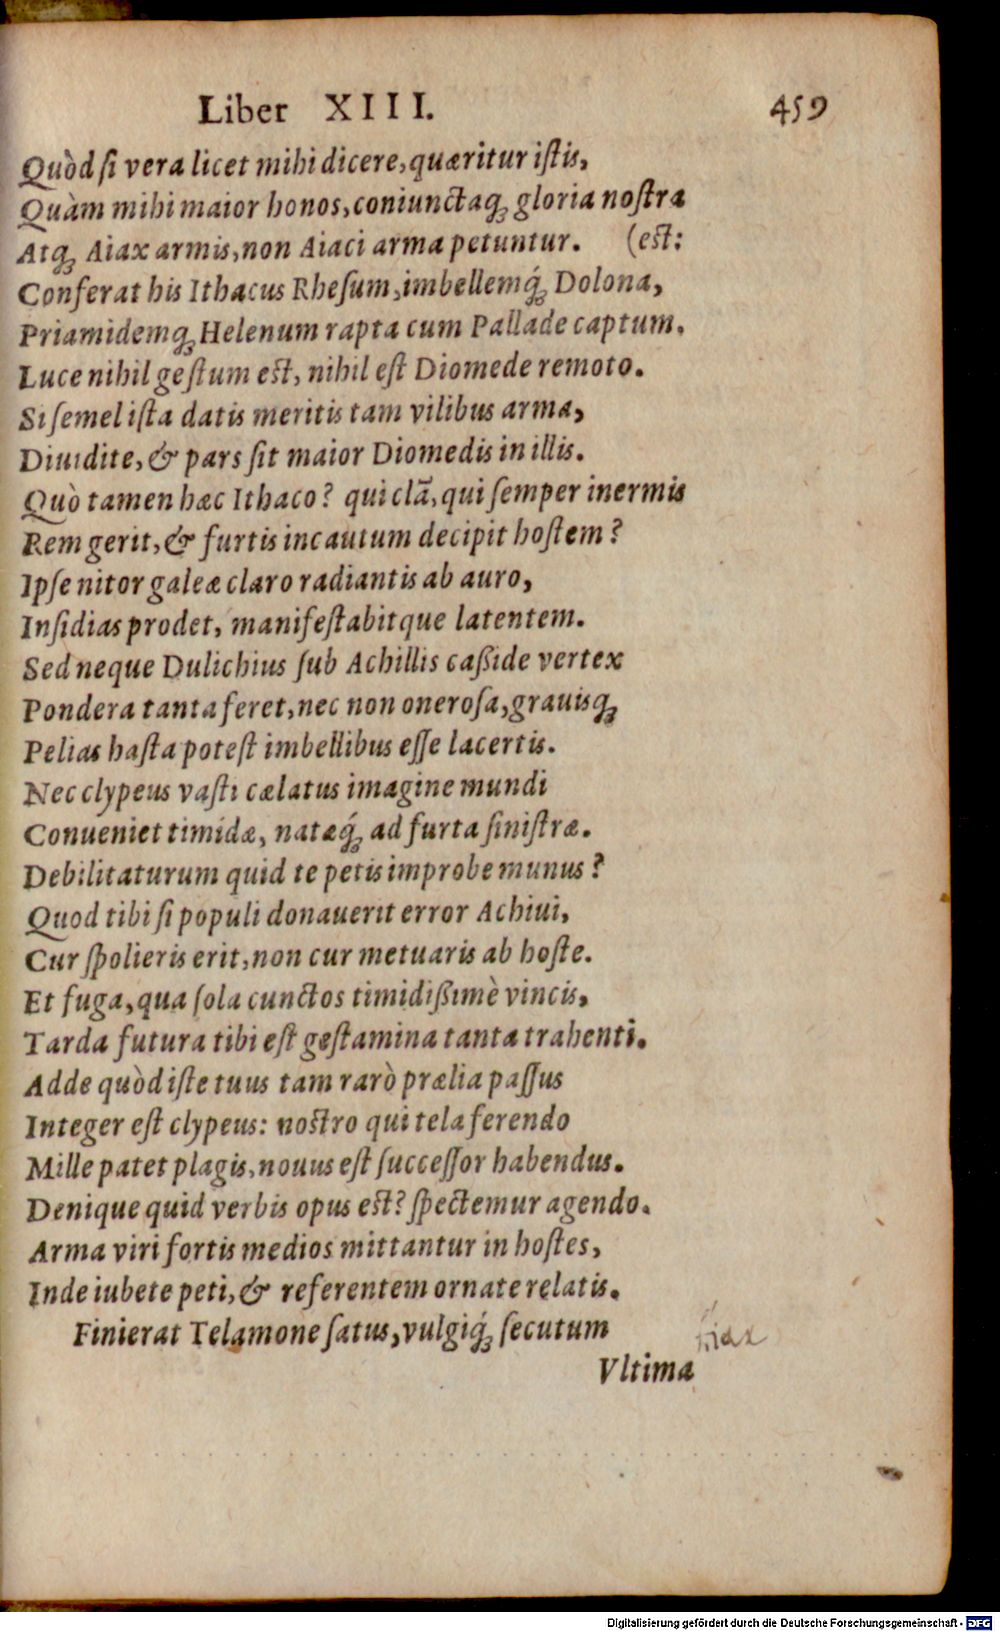 Liber XIIII. 459
Quòd ſi vera licet mihi dicere, quæritur iſtis,
Quàm mihi maior honos, coniunctaq́ꝫ gloria noſtra
Atqꝫ Aiax armis, non Aiaci arma petuntur. (eſt:
Conferat his Ithacus Rheſum, imbellemq́ꝫ Dolona,
Priamidemqꝫ Helenum rapta cum Pallade captum.
Luce nihil geſtum eſt, nihil eſt Diomede remoto.
Si ſemel iſta datis meritis tam vilibus arma,
Diuidite, & pars ſit maior Diomedis in illis.
Quò tamen hæc Ithaco? qui clā, qui ſemper inermis
Rem gerit, & furtis incautum decipit hoſtem?
Ipſe nitor galeæ claro radiantis ab auro,
Inſidias prodet, manifeſtabitque latentem.
Sed neque Dulichius ſub Achillis caßide vertex
Pondera tanta feret, nec non oneroſa, grauisqꝫ
Pelias haſta poteſt imbellibus eſſe lacertis.
Nec clypeus vaſti cælatus imagine mundi
Conueniet timidæ, natæq́ꝫ ad furta ſiniſtræ.
Debilitaturum quid te petis improbe munus?
Quod tibi ſi populi donauerit error Achiui,
Cur ſpolieris erit, non cur metuaris ab hoſte.
Et fuga, qua ſola cunctos timidißimè vincis,
Tarda futura tibi eſt geſtamina tanta trahenti.
Adde quòd iſte tuus tam rarò prælia paſſus
Integer eſt clypeus: noſtro qui tela ferendo
Mille patet plagis, nouus eſt ſucceſſor habendus.
Denique quid verbis opus eſt? ſpectemur agendo.
Arma viri fortis medios mittantur in hoſtes,
Inde iubete peti, & referentem ornate relatis.
Finierat Telamone ſatus, vulgiq́ꝫ ſecutum
Vltima
Digitalisierung gefördert durch die Deutsche Forschungsgemeinschaft - DFG